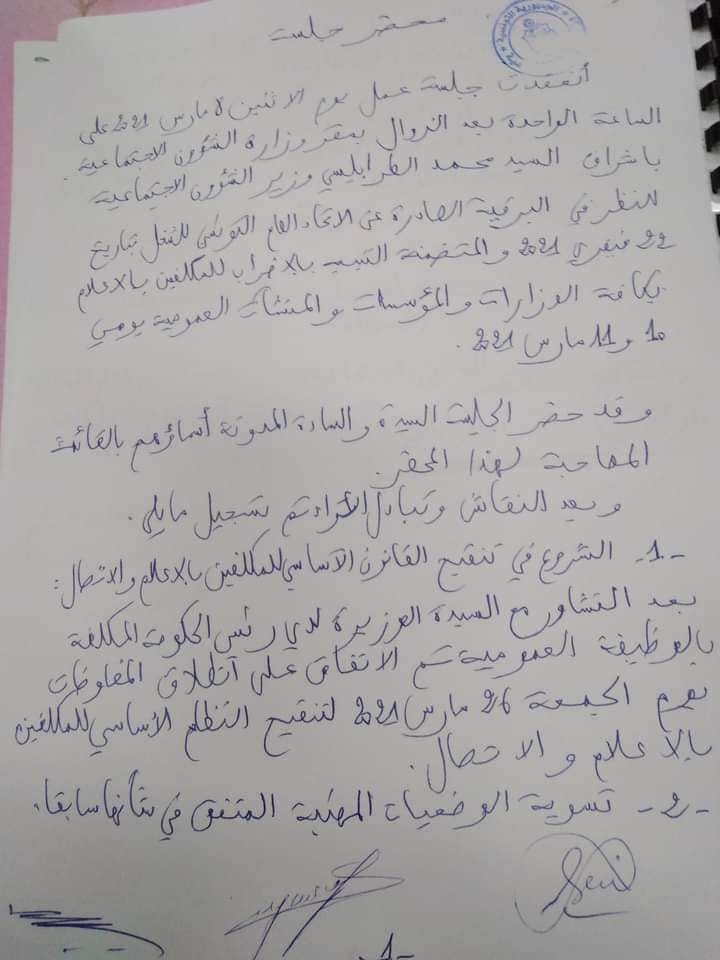 محضر جلسة
الجمهورية التونسية
أنعقدت جلسة عمل يوم الاثنين 8 مارس 2021 على
الساعة الواحدة بعد الزوال بمقر وزارة الشؤون الاجتماعية
باشراف السيد محمد الطرابلسي وزير الشؤون الاجتماعية
للنظر في البرقية الصادرة عن الاتحاد العام التونسي للشغل بتاريخ
22 فيفري 2021 والمتضمنة التنبيه بالاضراب للمكلفين بالاعلام
بكافة الوزارات والمؤسسات والمنشآت العمومية يومي
10 و 11 مارس 2021.
وقد حضر الجلسة السيدة والسادة المدونة أسماؤهم بالقائمة
المصاحبة لهذا المحضر.
وبعد النقاش وتبادل الآراء تم تسجيل ما يلي.
-1- الشروع في تنقيح القانون الأساسي للمكلفين بالاعلام والاتصال:
بعد التشاور مع السيدة الوزيرة لدى رئيس الحكومة المكلفة
بالوظيفة العمومية تم الاتفاق على انطلاق المفاوضات
يوم الجمعة 26 مارس 2021 لتنقيح النظام الأساسي للمكلفين
بالاعلام والاتصال.
-2- تسوية الوضعيات المهنية المتفق في شأنها سابقا.
-1-